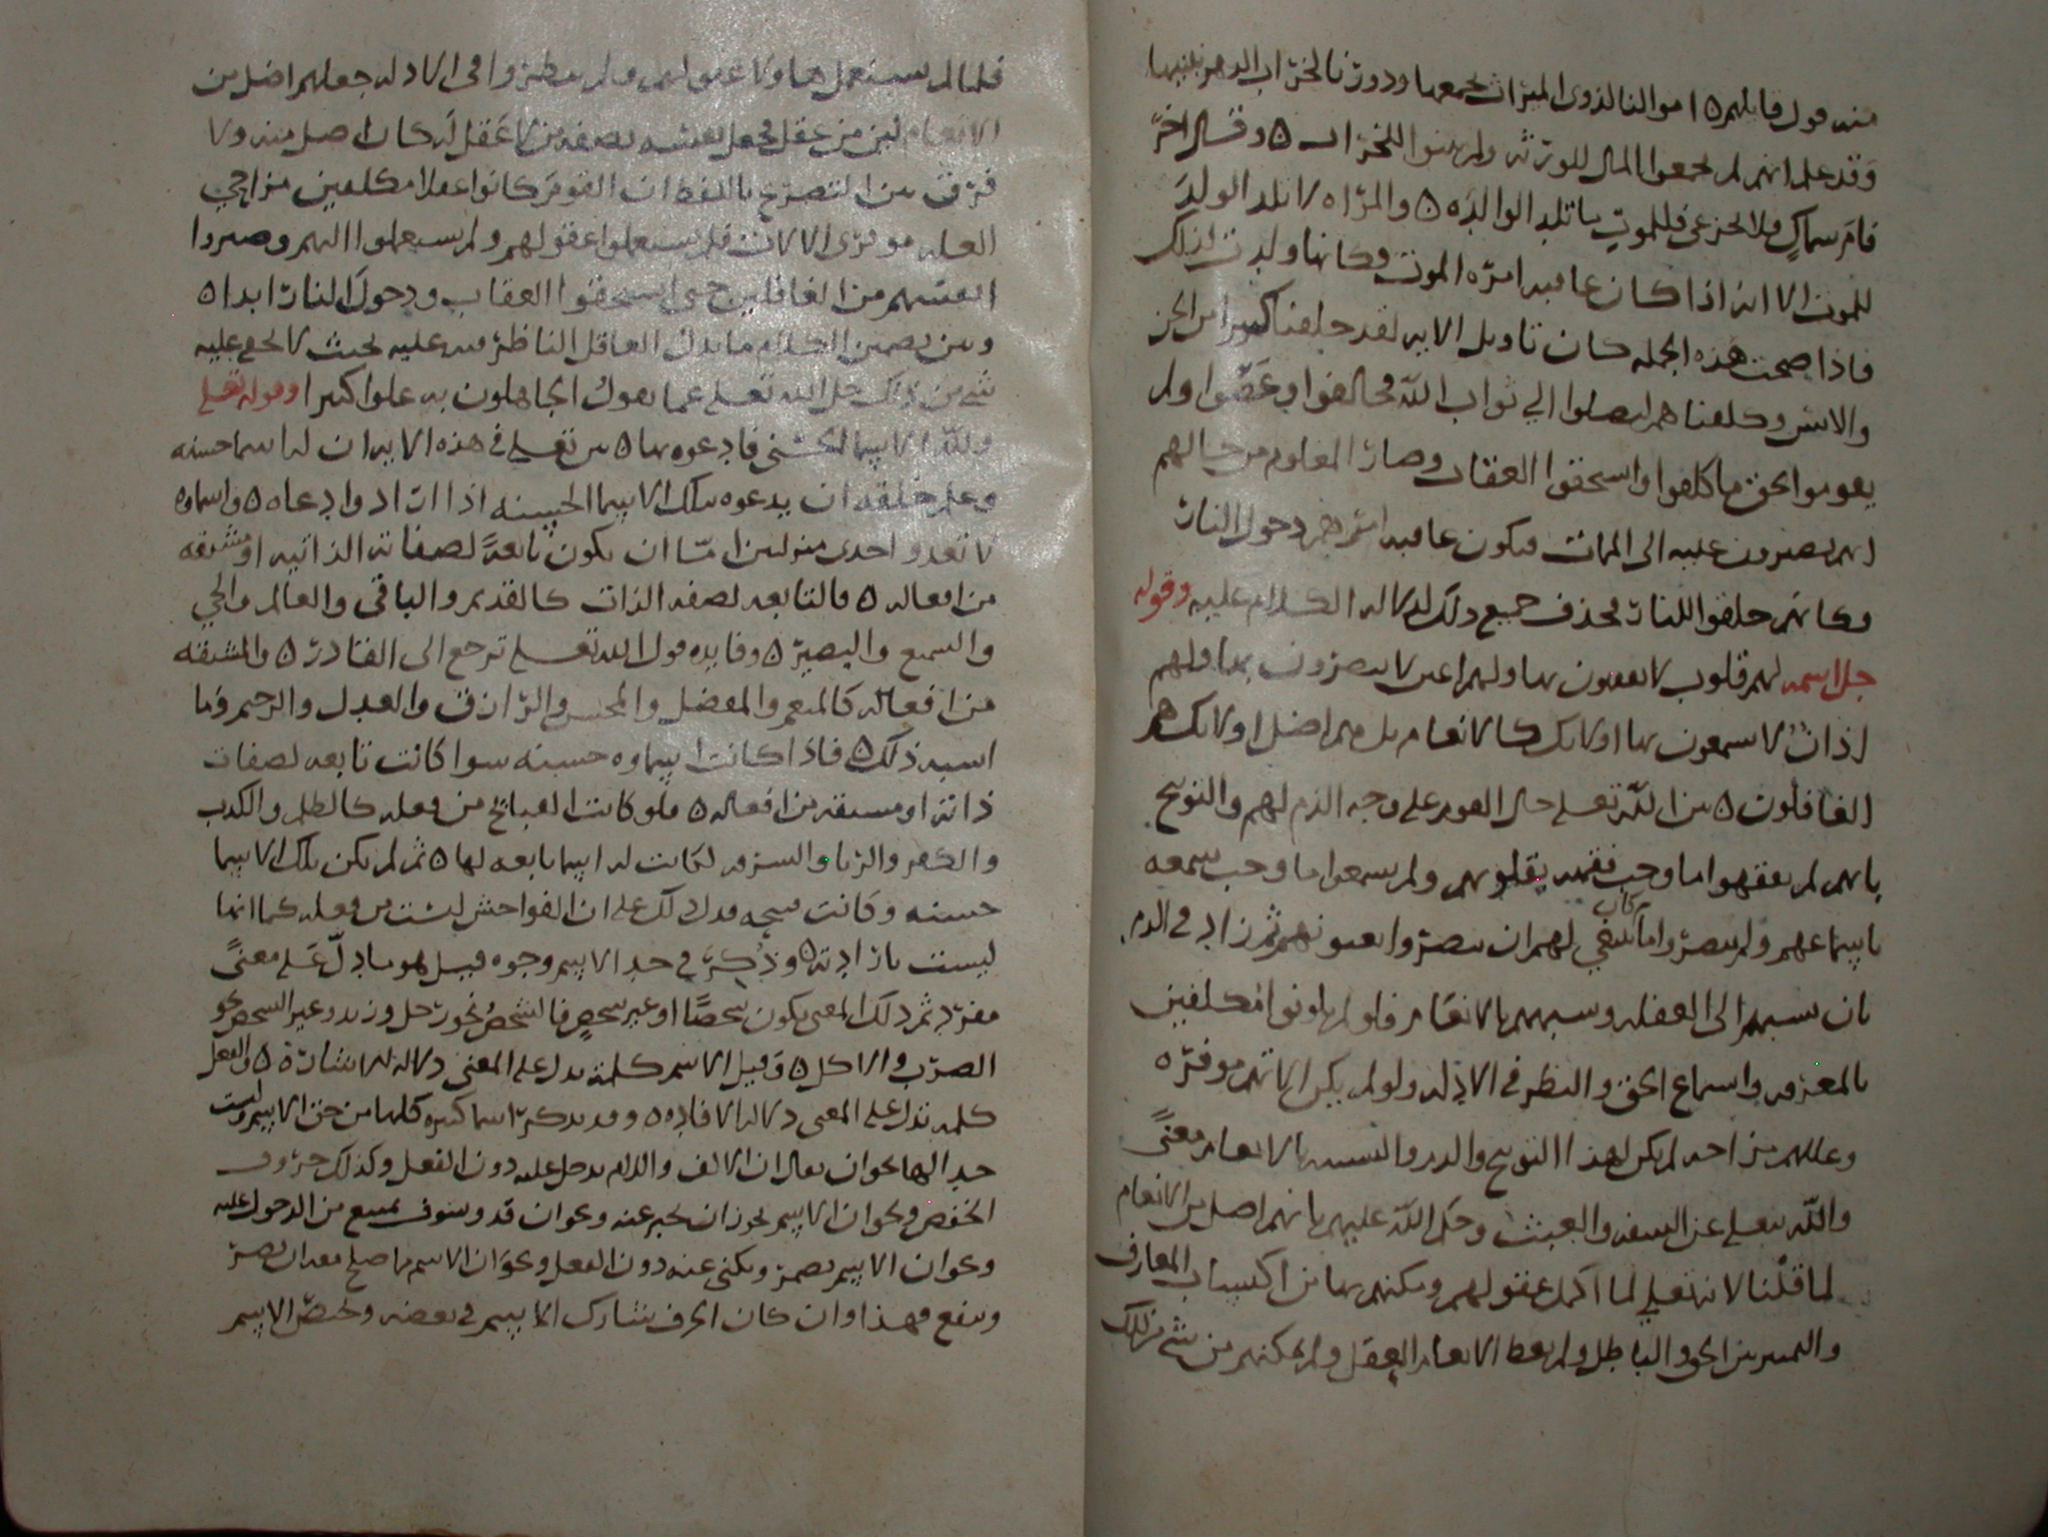 منه قول قايلهم ٥ اموالنا لذوي الميراث نجمعها ودورنا لخراب الدهر نبنيها
وقد علم انهم لم يجمعوا المال للورثه ولم يبنوا للخراب ٥ وقال اخر
فام سماك فلا تجزعي فللموت ما تلد الوالده ٥ والمراه لا تلد الولد
للموت الا انه اذا كان عاقبه امره الموت فكانها ولدته لذلك
فاذا صحت هذه الجمله كان تاويل الايه لقد خلقنا كثيرا من الجن
والانس وكلفناهم ليصلوا الي ثواب الله فخالفوا وعصوا ولم
يقوموا بحق ما كلفوا واستحقوا العقاب وصار المعلوم من حالهم
انهم يصيرون عليه الى الممات فيكون عاقبه امرهم دخول النار
وكانهم خلقوا للنار فحذف جميع ذلك لدلاله الكلام عليه وقوله
جل اسمه لهم قلوب لا يفقهون بها ولهم اعين لا يبصرون بها ولهم
اذان لا يسمعون بها اولائك كالانعام بل هم اضل اولائك هم
الغافلون ٥ بين الله تعلى حال القوم على وجه الذم لهم والتوبيخ
بانهم لم يفقهوا ما وجب فقهه بقلوبهم ولم يسمعوا ما وجب سمعه
باسماعهم ولم يبصروا ما كان ينبغي لهم ان يبصروا بعيونهم ثم زاد في الذم
بان نسبهم الى الغفله وشبههم بالانعام فلو لم يكونوا مكلفين
بالمعرفه واسماع الحق والنظر في الادله ولو لم يكن الاتهم موفره
وعللهم مزاحه لم يكن لهذا التوبيخ والذم والتشبيه بالانعام معنىً
والله يتعلى عن السفه والعبث وحكم الله عليهم بانهم اضل من الانعام
لما قلنا لانه تعلى لما اكمل عقولهم ومكنهم بها من اكتساب المعارف
والتمييز بين الحق والباطل ولم يعط الانعام العقل ولم يمكنهم من شي من ذلك
فلما لم يستعملوا ولم ينظروا في الادله جعلهم اضل من
الانعام لان من عقل فجعل نفسه بصفه من لا عقل له كان اضل منه ولا
فرق بين التصريح باللفظ ان القوم كانوا عقلا مكلفين مزاحي
العله موفري الالات فلم يستعملوا عقولهم ولم يستعملوا التهم وصيروا
انفسهم من الغافلين حتى استحقوا العقاب ودخول النار ابدا ٥
وبين تضمين الكلام ما يدل العاقل الناظر فيه عليه بحيث لا يخفى عليه
شي من ذلك جل الله تعلى عما يقول الجاهلون به علوا كبيرا وقوله تعلى
ولله الاسما الحسنى فادعوه بها ٥ بين تعلى في هذه الايه ان له اسما حسنه
وعلم خلقه ان يدعوه بتلك الاسما الحسنه اذا ارادوا دعاه ٥ واسماوه
لا تعدو احدى منزلتين اما ان يكون تابعةً لصفاته الذاتيه او مشتقه
من افعاله ٥ فالتابعه لصفه الذات كالقديم والباقي والعالم والحي
والسميع والبصير ٥ وفايده قول الله تعلى ترجع الى القادر ٥ والمشتقه
من افعاله كالمنعم والمفضل والمحسن والرازق والعدل والرحيم وما
اشبه ذلك ٥ فاذا كانت اسماوه حسنه سوا كانت تابعه لصفات
ذاته او مشتقه من افعاله ٥ فلو كانت القبايح من فعله كالظلم والكذب
والكفر والزنا والسرقه لكانت له اسما تابعه لها ٥ ثم لم تكن تلك الاسما
حسنه وكانت قبيحه فدل ذلك على ان الفواحش ليست من فعله كما انها
ليست بارادته ٥ وذُكِرَ في حد الاسم وجوه قيل هو ما دلّ على معنىً
مفرد ثم ذلك المعنى يكون شخصًا او غير شخصٍ فالشخص نحو رجل وزيد وغير الشخص نحو
الضرب والاكل ٥ وقيل الاسم كلمة تدل على المعنى دلاله الاشارة ٥ والفعل
كلمه تدل على المعنى دلاله الافاده ٥ وقد يذكر اشيا كثيره كلها من حق الاسم وليست
حد الها نحو ان يقال ان الالف واللام يدخل عليه دون الفعل وكذلك حروف
الخفض ونحو ان الاسم يجوز ان يخبر عنه ونحو ان قد وسوف يمتنع من الدخول عليه
ونحو ان الاسم يضمر ويكنى عنه دون الفعل ونحو ان الاسم ما صلح معه ان يضر
وينفع فهذا وان كان الحرف يشارك الاسم في بعضه ويختصّ الاسم